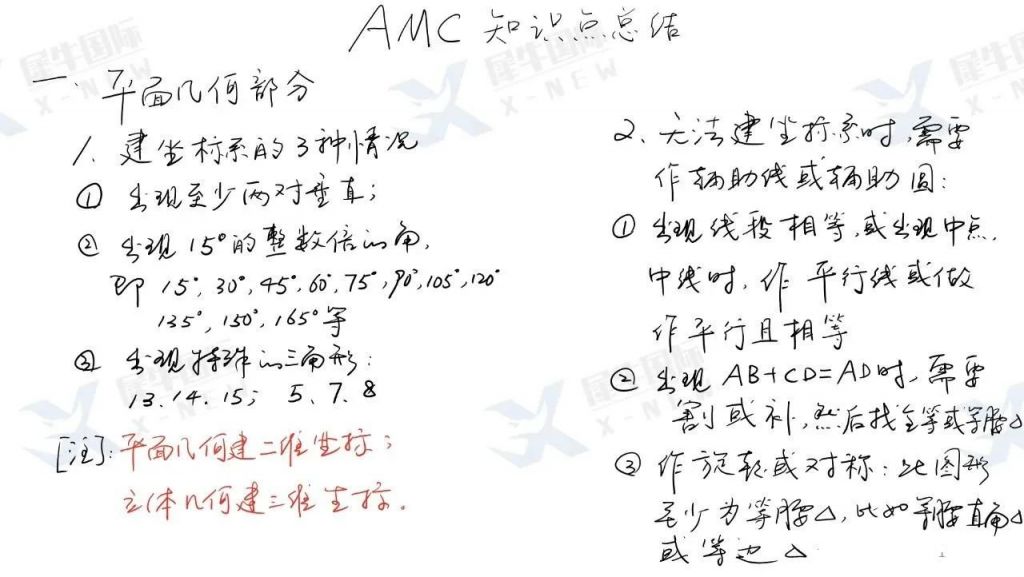 AMC 知识点总结
一、平面几何部分
1、建坐标系的3种情况
① 出现至少两对垂直；
② 出现15°的整数倍的角,
即 15°, 30°, 45°, 60°, 75°, 90°, 105°, 120°
135°, 150°, 165°等
③ 出现特殊的三角形:
13. 14. 15; 5. 7. 8
[注]: 平面几何建二维坐标；
立体几何建三维坐标。
2、无法建坐标系时,需要
作辅助线或辅助圆:
① 出现线段相等,或出现中点.
中线时, 作平行线或做
作平行且相等
② 出现 AB+CD=AD时,需要
割或补,然后找全等或等腰△
③ 作旋转或对称: 此图形
至少为等腰△, 比如等腰直角△
或等边△
犀牛国际
X-NEW